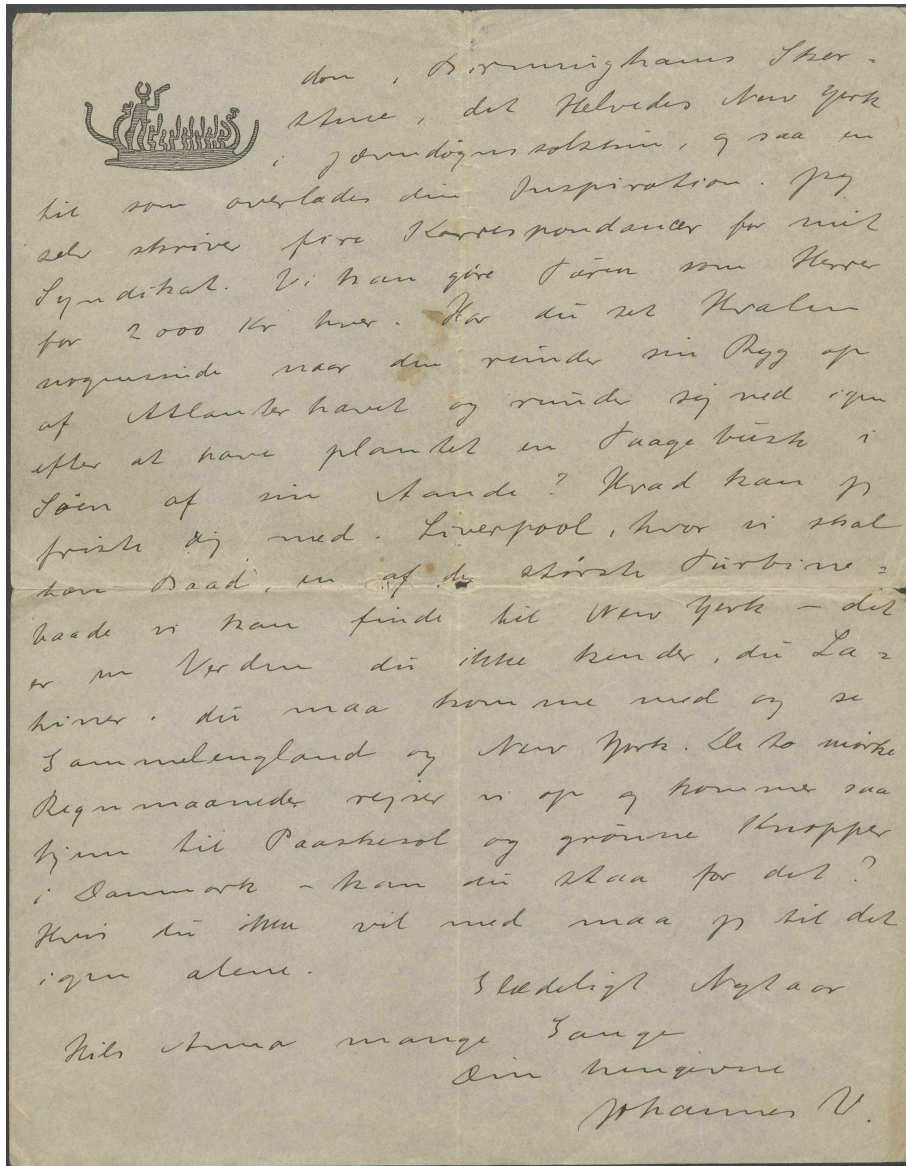 don, Birminghams Skor-
stene, det Helvedes New York
i Jævndøgnssolskin, og saa en
til som overlades din Inspiration. Jeg
selv skriver fire Korrespondancer for mit
Syndikat. Vi kan göre Turen som Herrer
for 2000 Kr hver. Har du set Hvalen
nogensinde naar den runder sin Ryg op
af Atlanterhavet og runder sig ned igen
efter at have plantet en Taagebusk i
Søen af sin Aande? Hvad kan jeg
friste dig med. Liverpool, hvor vi skal
have Baad, en af de største Turbine=
baade vi kan finde til New York – det
er en Verden du ikke kender, du La=
tiner. du maa komme med og se
Gammelengland og New York. De to mørke
Regnmaaneder rejser vi op og kommer saa
hjem til Paaskesol og grönne Knopper
i Danmark – kan du staa for det?
Hvis du ikke vil med maa jeg til det
igen alene.
Glædeligt Nytaar
Hils Anna mange Gange
Din hengivne
Johannes V.